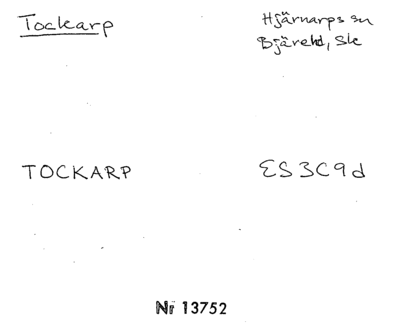 Tockarp
Hjärnarps sn
Bjärehd, Sk
TOCKARP
ES3C9d
Nr 13752